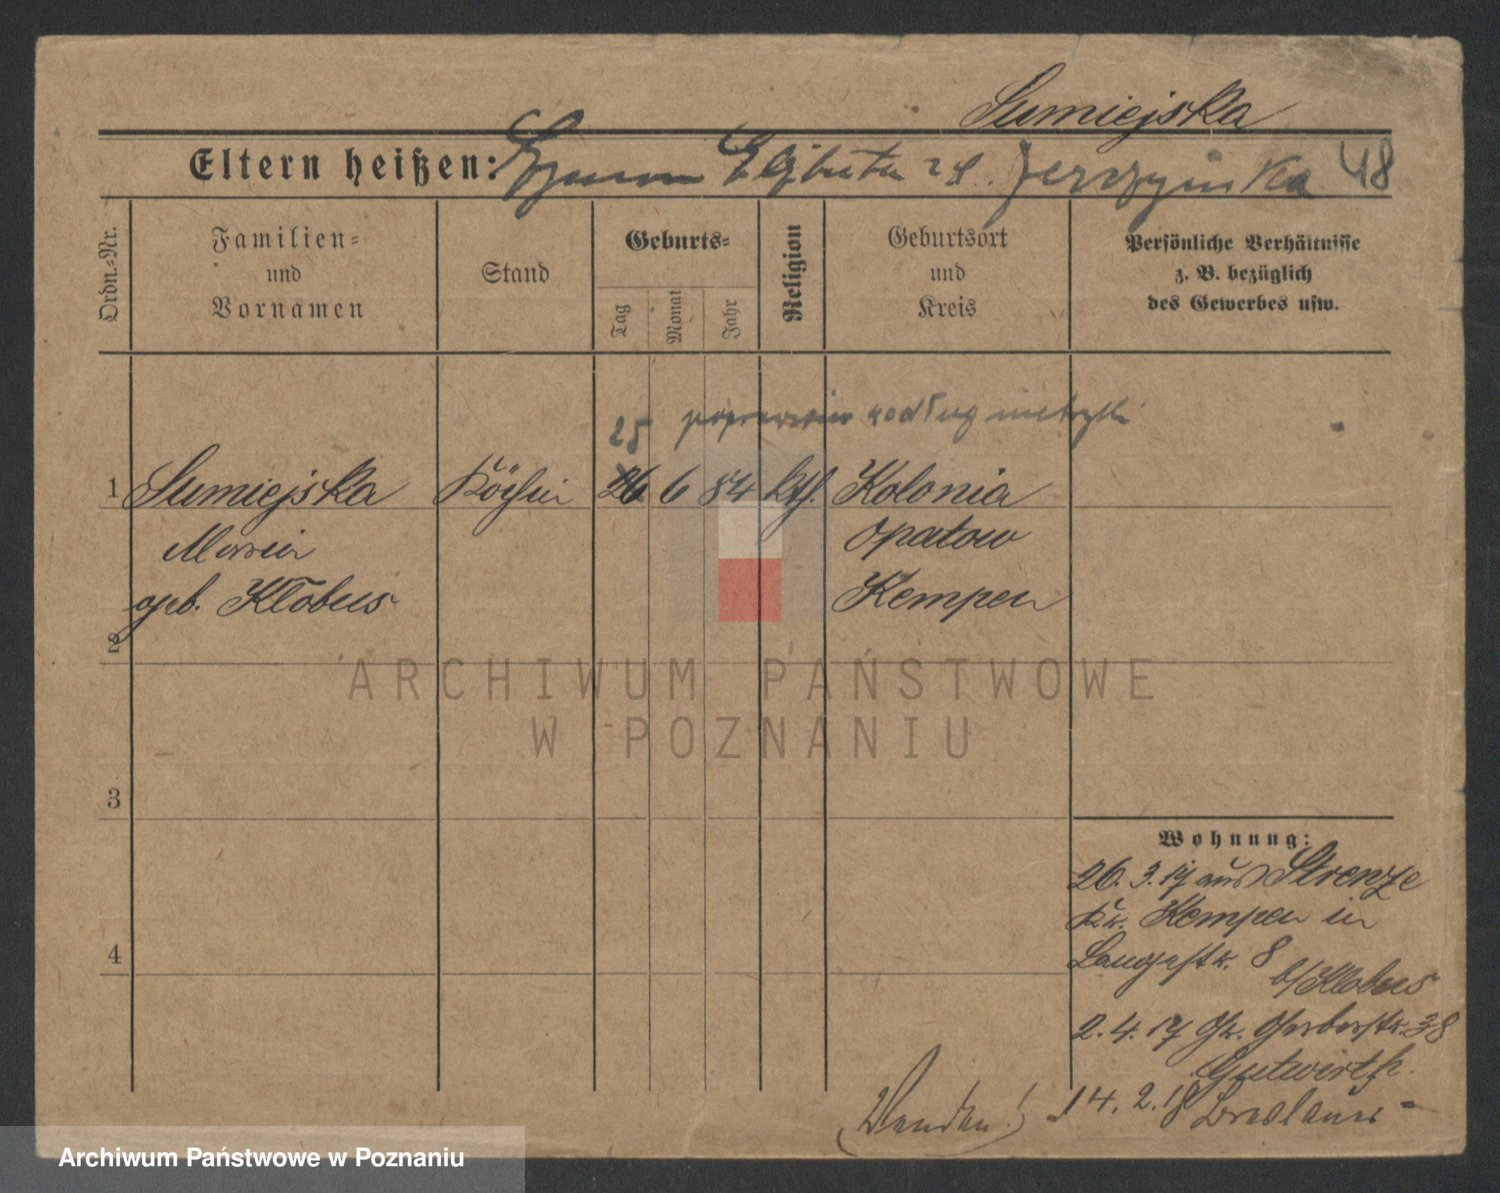 Sumiejska
Eltern heißen: Szymon Elżbieta z d. 48
Ordn.-Nr.
Familien-
und
Vornamen
Stand
Geburts-
Tag
Monat
Jahr
Religion
Geburtsort
und
Kreis
Persönliche Verhältnisse
z. B. bezüglich
des Gewerbes usw.
25 według metryki
1 Sumiejska Köchin 26 6 84 kth. Kolonia
Maria Opatow
geb. Kłobus Kempen
2
3
4
Wohnung:
26. 3. 17 aus Strenze
Kr. Kempen in
Langestr. 8
b/Klobus
2. 4. 17 Gr. Gerberstr. 38
Gutwirth.
14. 2. 18 Breslauer-
(Wenden!)
ARCHIWUM PAŃSTWOWE
W POZNANIU
Archiwum Państwowe w Poznaniu